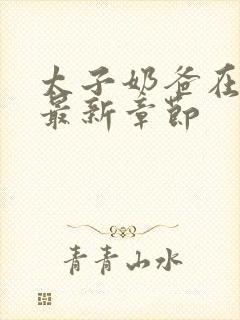 太子奶爸在
最新章节
青青山水